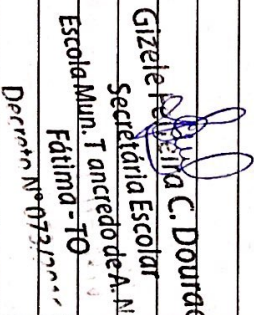 Gizele Ferreira C. Dourad
Secretária Escolar
Escola Mun. Tancredo de A. N
Fátima - TO
Decreto Nº 073/20